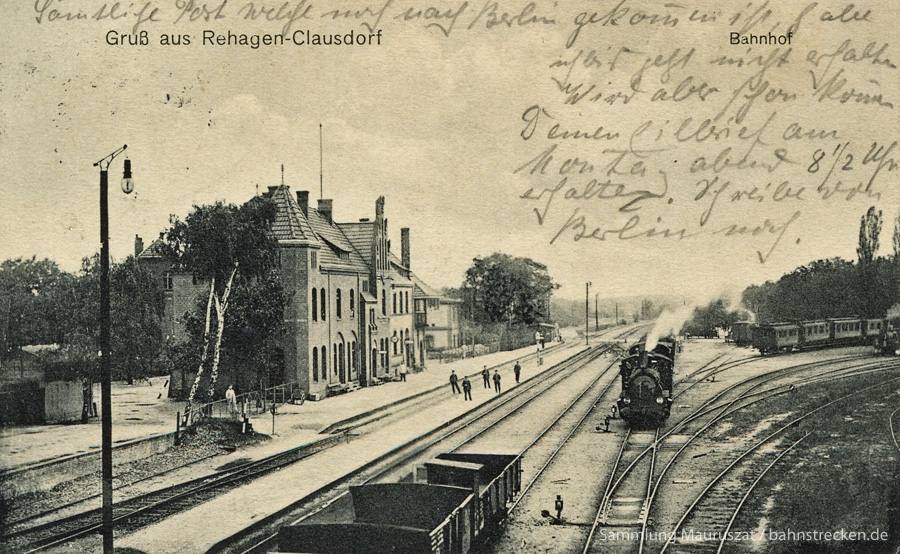 Sämtliche Post welche noch nach Berlin gekom̅en ist, habe
Gruß aus Rehagen-Clausdorf
Bahnhof
ich bis jetzt nicht erhalten
Wird aber schon kom̅en
Deinen Eilbrief am
Montag abend 8 1/2 Uhr
erhalten. Schreibe von
Berlin noch.
Sammlung Mauruszat / bahnstrecken.de